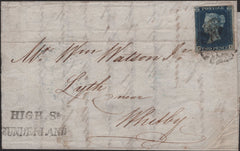 POSTAGE
Mr. Wm Watson Jr.
Lyth near
Whitby
HIGH. St
SUNDERLAND